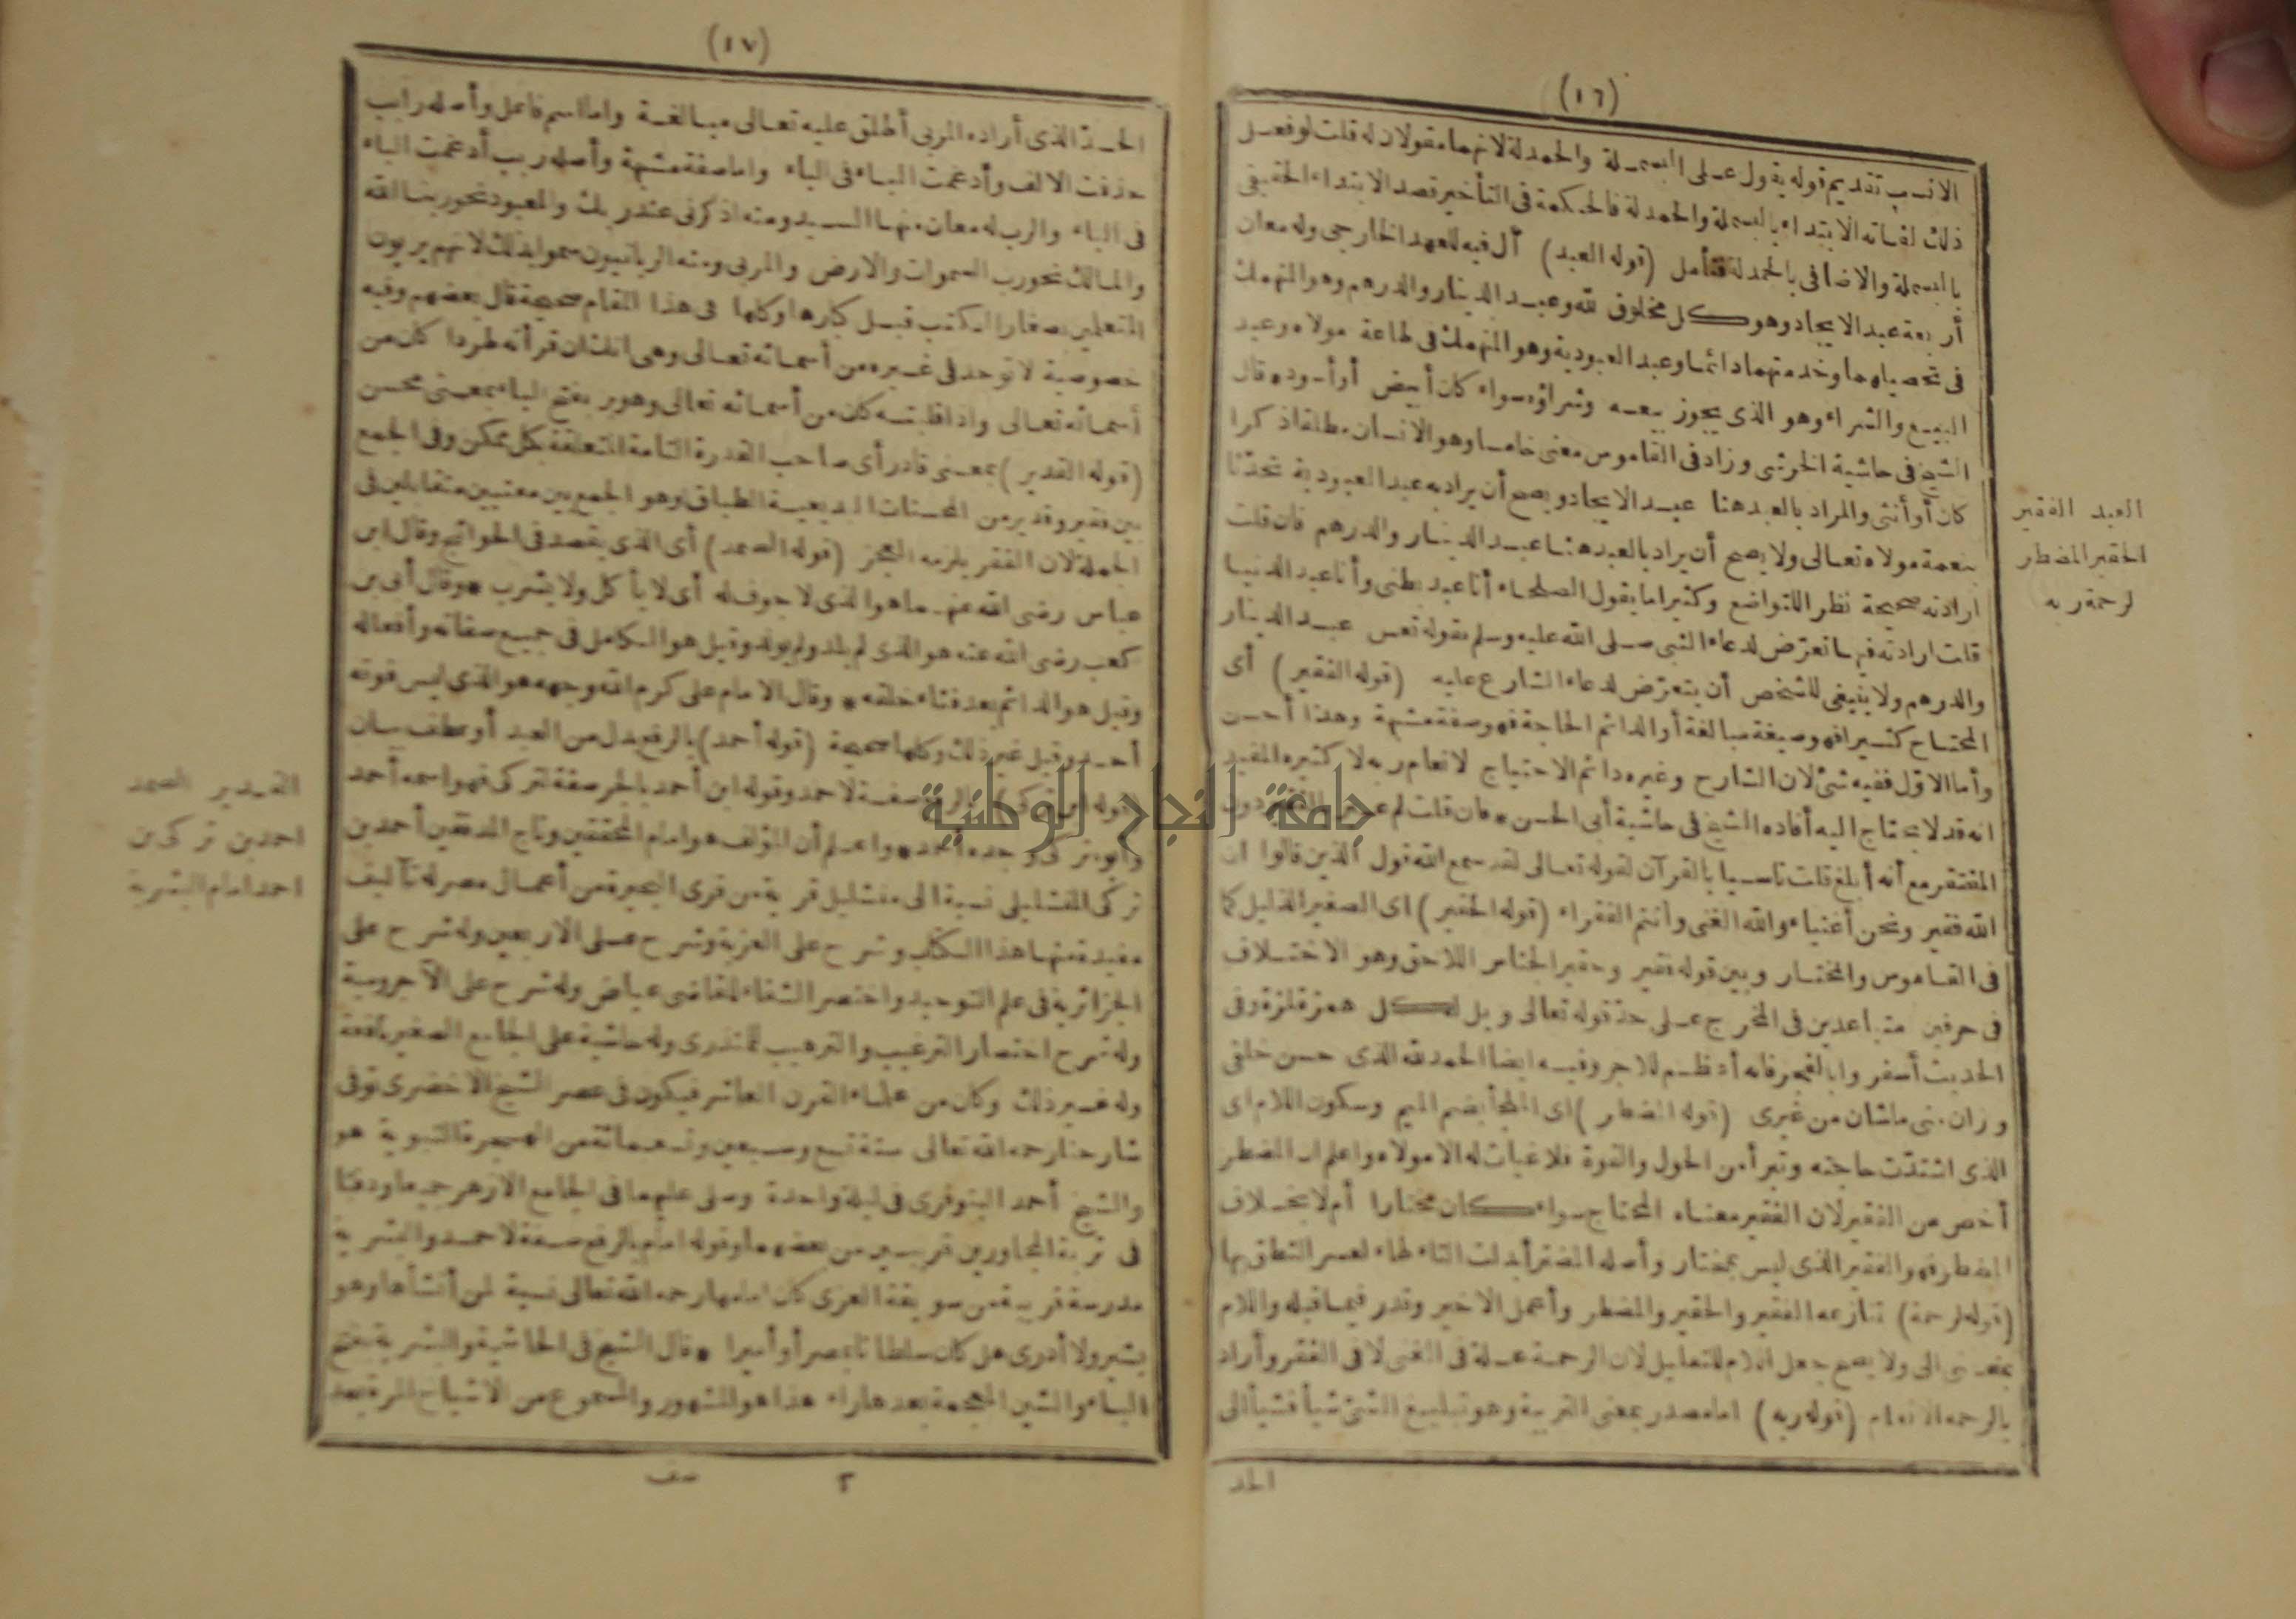 (١٦)
الانسب تقديم قوله يقول على البسملة والحمدلة لانهما مقولان له قلت لو فعل
ذلك لفاته الابتداء بالبسملة والحمدلة فالحكمة فى التأخير قصد الابتداء الحقيقى
بالبسملة والاضافى بالحمدلة فتأمل (قوله العبد) أل فيه للعهد الخارجى وله معان
أربعة عبد الايجاد وهو كل مخلوق لله وعبد الدينار والدرهم وهو المنهمك
فى تحصيلهما وخدمتهما دائما وعبد العبودية وهو المنهمك فى طاعة مولاه وعبد
البيع والشراء وهو الذى يجوز بيعه وشراؤه سواء كان أبيض أو أسود قال
الشيخ فى حاشية الخرشى وزاد فى القاموس معنى خامسا وهو الانسان مطلقا ذكرا
كان أو أنثى والمراد بالعبد هنا عبد الايجاد ويصح أن يراد به عبد العبودية تحدثا
بنعمة مولاه تعالى ولا يصح أن يراد بالعبد هنا عبد الدينار والدرهم فان قلت
ارادته صحيحة نظرا للتواضع وكثيرا ما يقول الصلحاء أنا عبد بطنى وأنا عبد الدنيا
قلت ارادته فيها تعرض لدعاء النبى صلى الله عليه وسلم بقوله تعس عبد الدينار
والدرهم ولا ينبغى للشخص أن يتعرض لدعاء الشارع عليه (قوله الفقير) أى
المحتاج كثيرا فهو صيغة مبالغة أو الدائم الحاجة فهو صفة مشبهة وهذا أحسن
وأما الاول ففيه شئ لان الشارح وغيره دائم الاحتياج لانعام ربه لا كثيره المفيد
انه قد لا يحتاج اليه أفاده الشيخ فى حاشية أبى الحسن * فان قلت لم عبر بالفقير دون
المفتقر مع أنه أبلغ قلت تاسيا بالقرآن لقوله تعالى لقد سمع الله قول الذين قالوا ان
الله فقير ونحن أغنياء والله الغنى وأنتم الفقراء (قوله الحقير) اى الصغير الذليل كما
فى القاموس والمختار وبين قوله فقير وحقير الجناس اللاحق وهو الاختلاف
فى حرفين متباعدين فى المخرج على حد قوله تعالى ويل لكل همزة لمزة وفى
الحديث أسفروا بالفجر فانه أعظم للاجر وفيه ايضا الحمد لله الذى حسن خلقى
وزان منى ما شان من غيرى (قوله المضطر) اى الملجأ بضم الميم وسكون اللام اى
الذى اشتدت حاجته وتبرأ من الحول والقوة فلا غياث له الا مولاه واعلم ان المضطر
أخص من الفقير لان الفقير معناه المحتاج سواء كان مختارا أم لا بخلاف
المضطر فهو الفقير الذى ليس بمختار وأصله المضتر أبدلت التاء طاء لعسر النطق بها
(قوله لرحمة) تنازعه الفقير والحقير والمضطر وأعمل الاخير وقدر فيما قبله واللام
بمعنى الى ولا يصح جعل اللام للتعليل لان الرحمة علة فى الغنى لا فى الفقر وأراد
بالرحمة الانعام (قوله ربه) اما مصدر بمعنى التربية وهو تبليغ الشئ شيأ فشيأ الى
الحد
العبد الفقير
الحقير المضطر
لرحمة ربه
(١٧)
الحد الذى أراده المربى أطلق عليه تعالى مبالغة واما اسم فاعل وأصله رابب
حذفت الالف وأدغمت الباء فى الباء واما صفة مشبهة وأصله ربب أدغمت الباء
فى الباء والرب له معان منها السيد ومنه اذكرنى عند ربك والمعبود نحو ربنا الله
والمالك نحو رب السموات والارض والمربى ومنه الربانيون سموا بذلك لانهم يربون
المتعلمين بصغار الكتب قبل كبارها وكلها فى هذا المقام صحيحة قال بعضهم وفيه
خصوصية لا توجد فى غيره من أسمائه تعالى وهى انك ان قرأته طردا كان من
أسمائه تعالى واذا قلبته كان من أسمائه تعالى وهو بر بفتح الباء بمعنى محسن
(قوله القدير) بمعنى قادر أى صاحب القدرة التامة المتعلقة بكل ممكن وفى الجمع
بين فقير وقدير من المحسنات البديعية الطباق وهو الجمع بين معنيين متقابلين فى
الجملة لان الفقر يلزمه العجز (قوله الصمد) أى الذى يقصد فى الحوائج وقال ابن
عباس رضى الله عنهما هو الذى لا جوف له أى لا يأكل ولا يشرب * وقال أبى بن
كعب رضى الله عنه هو الذى لم يلد ولم يولد وقيل هو الكامل فى جميع صفاته وأفعاله
وقيل هو الدائم بعد فناء خلقه * وقال الامام على كرم الله وجهه هو الذى ليس فوقه
أحد وقيل غير ذلك وكلها صحيحة (قوله أحمد) بالرفع بدل من العبد أو عطف بيان
(قوله ابن تركى) بالرفع صفة لاحمد وقوله ابن أحمد بالجر صفة لتركى فهو اسمه أحمد
وأبوه تركى وجده أحمد * واعلم أن المؤلف هو امام المحققين وتاج المدققين أحمد بن
تركى المنشليلى نسبة الى منشليل قرية من قرى البحيرة من أعمال مصر له تآليف
مفيدة منها هذا الكتاب وشرح على العزية وشرح على الاربعين وله شرح على
الجزائرية فى علم التوحيد واختصر الشفاء للقاضى عياض وله شرح على الآجرومية
وله شرح اختصار الترغيب والترهيب للمنذرى وله حاشية على الجامع الصغير نافعة
وله غير ذلك وكان من علماء القرن العاشر فيكون فى عصر الشيخ الاخضرى توفى
شارحنا رحمه الله تعالى سنة تسع وسبعين وتسعمائة من الهجرة النبوية هو
والشيخ أحمد البنوفرى فى ليلة واحدة وصلى عليهما فى الجامع الازهر جميعا ودفنا
فى تربة المجاورين قريبين من بعضهما وقوله امام بالرفع صفة لاحمد والبشرية
مدرسة قريبة من سويقة العزى كان امامها رحمه الله تعالى نسبة لمن أنشأها وهو
بشير ولا أدرى هل كان سلطانا بمصر أو أميرا * قال الشيخ فى الحاشية والبشرية بفتح
الباء والشين المعجمة بعدها راء هذا هو المشهور والمسموع من الاشياخ المرة بعد
٢
القدير الصمد
احمد بن تركى بن
احمد امام البشرية
جامعة النجاح الوطنية